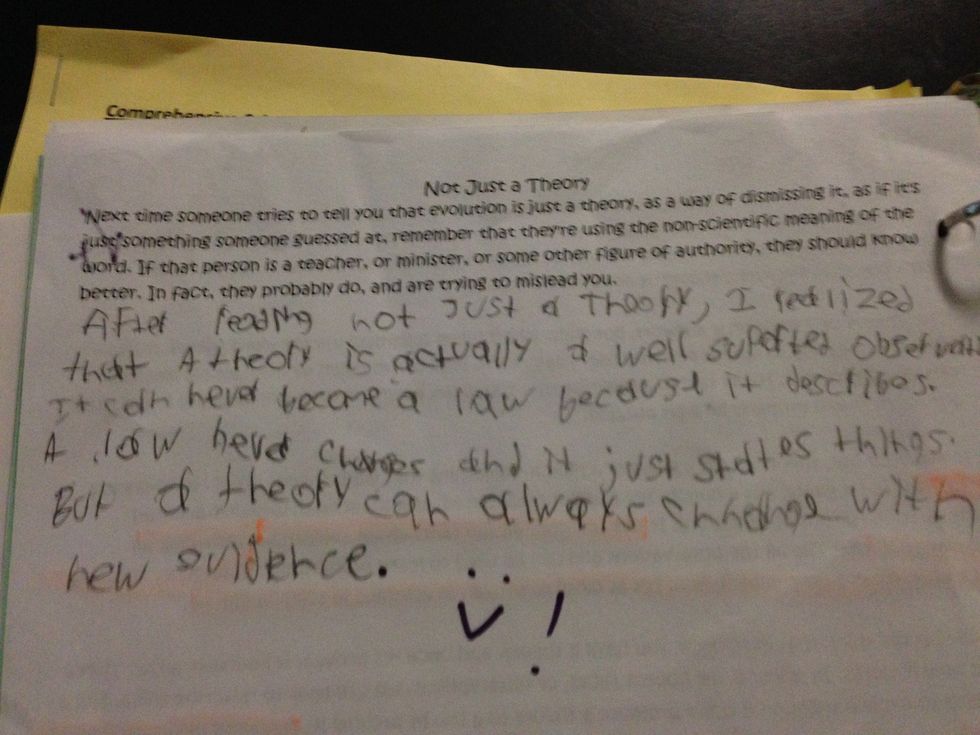 Comprehensive
Not Just a Theory
"Next time someone tries to tell you that evolution is just a theory, as a way of dismissing it, as if it's
just something someone guessed at, remember that they're using the non-scientific meaning of the
word. If that person is a teacher, or minister, or some other figure of authority, they should know
better. In fact, they probably do, and are trying to mislead you.
After reading not Just a Theory, I realized
that A theory is actually a well suported observati
It can never become a law because it describes.
A law never changes and it just states things.
But a theory can always change with
new evidence.